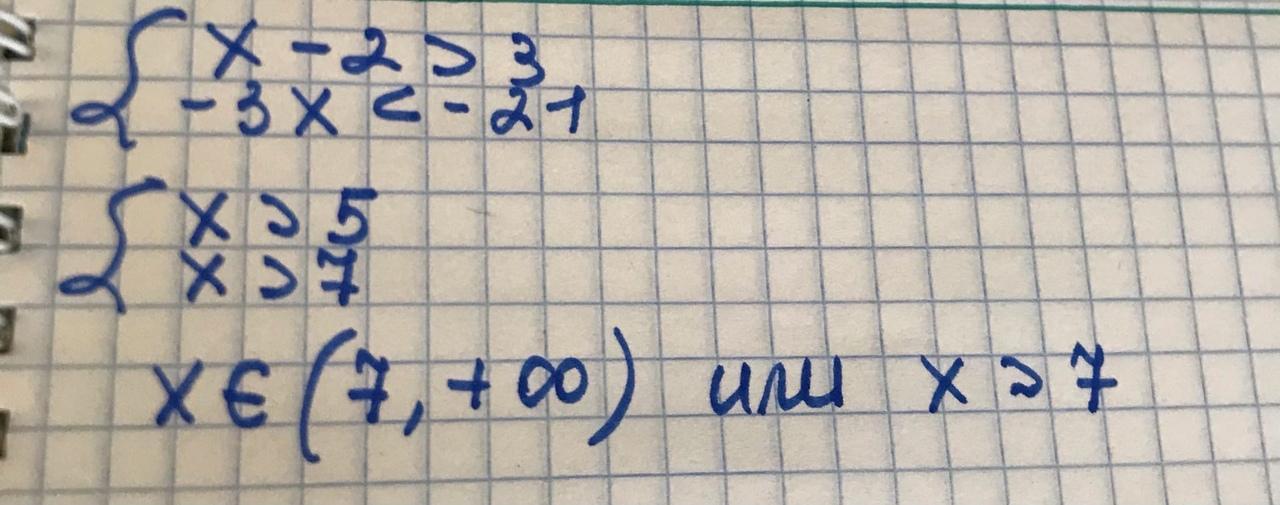 x - 2 > 3
-3x < -21
x > 5
x > 7
x ∈ (7, +∞) или x > 7